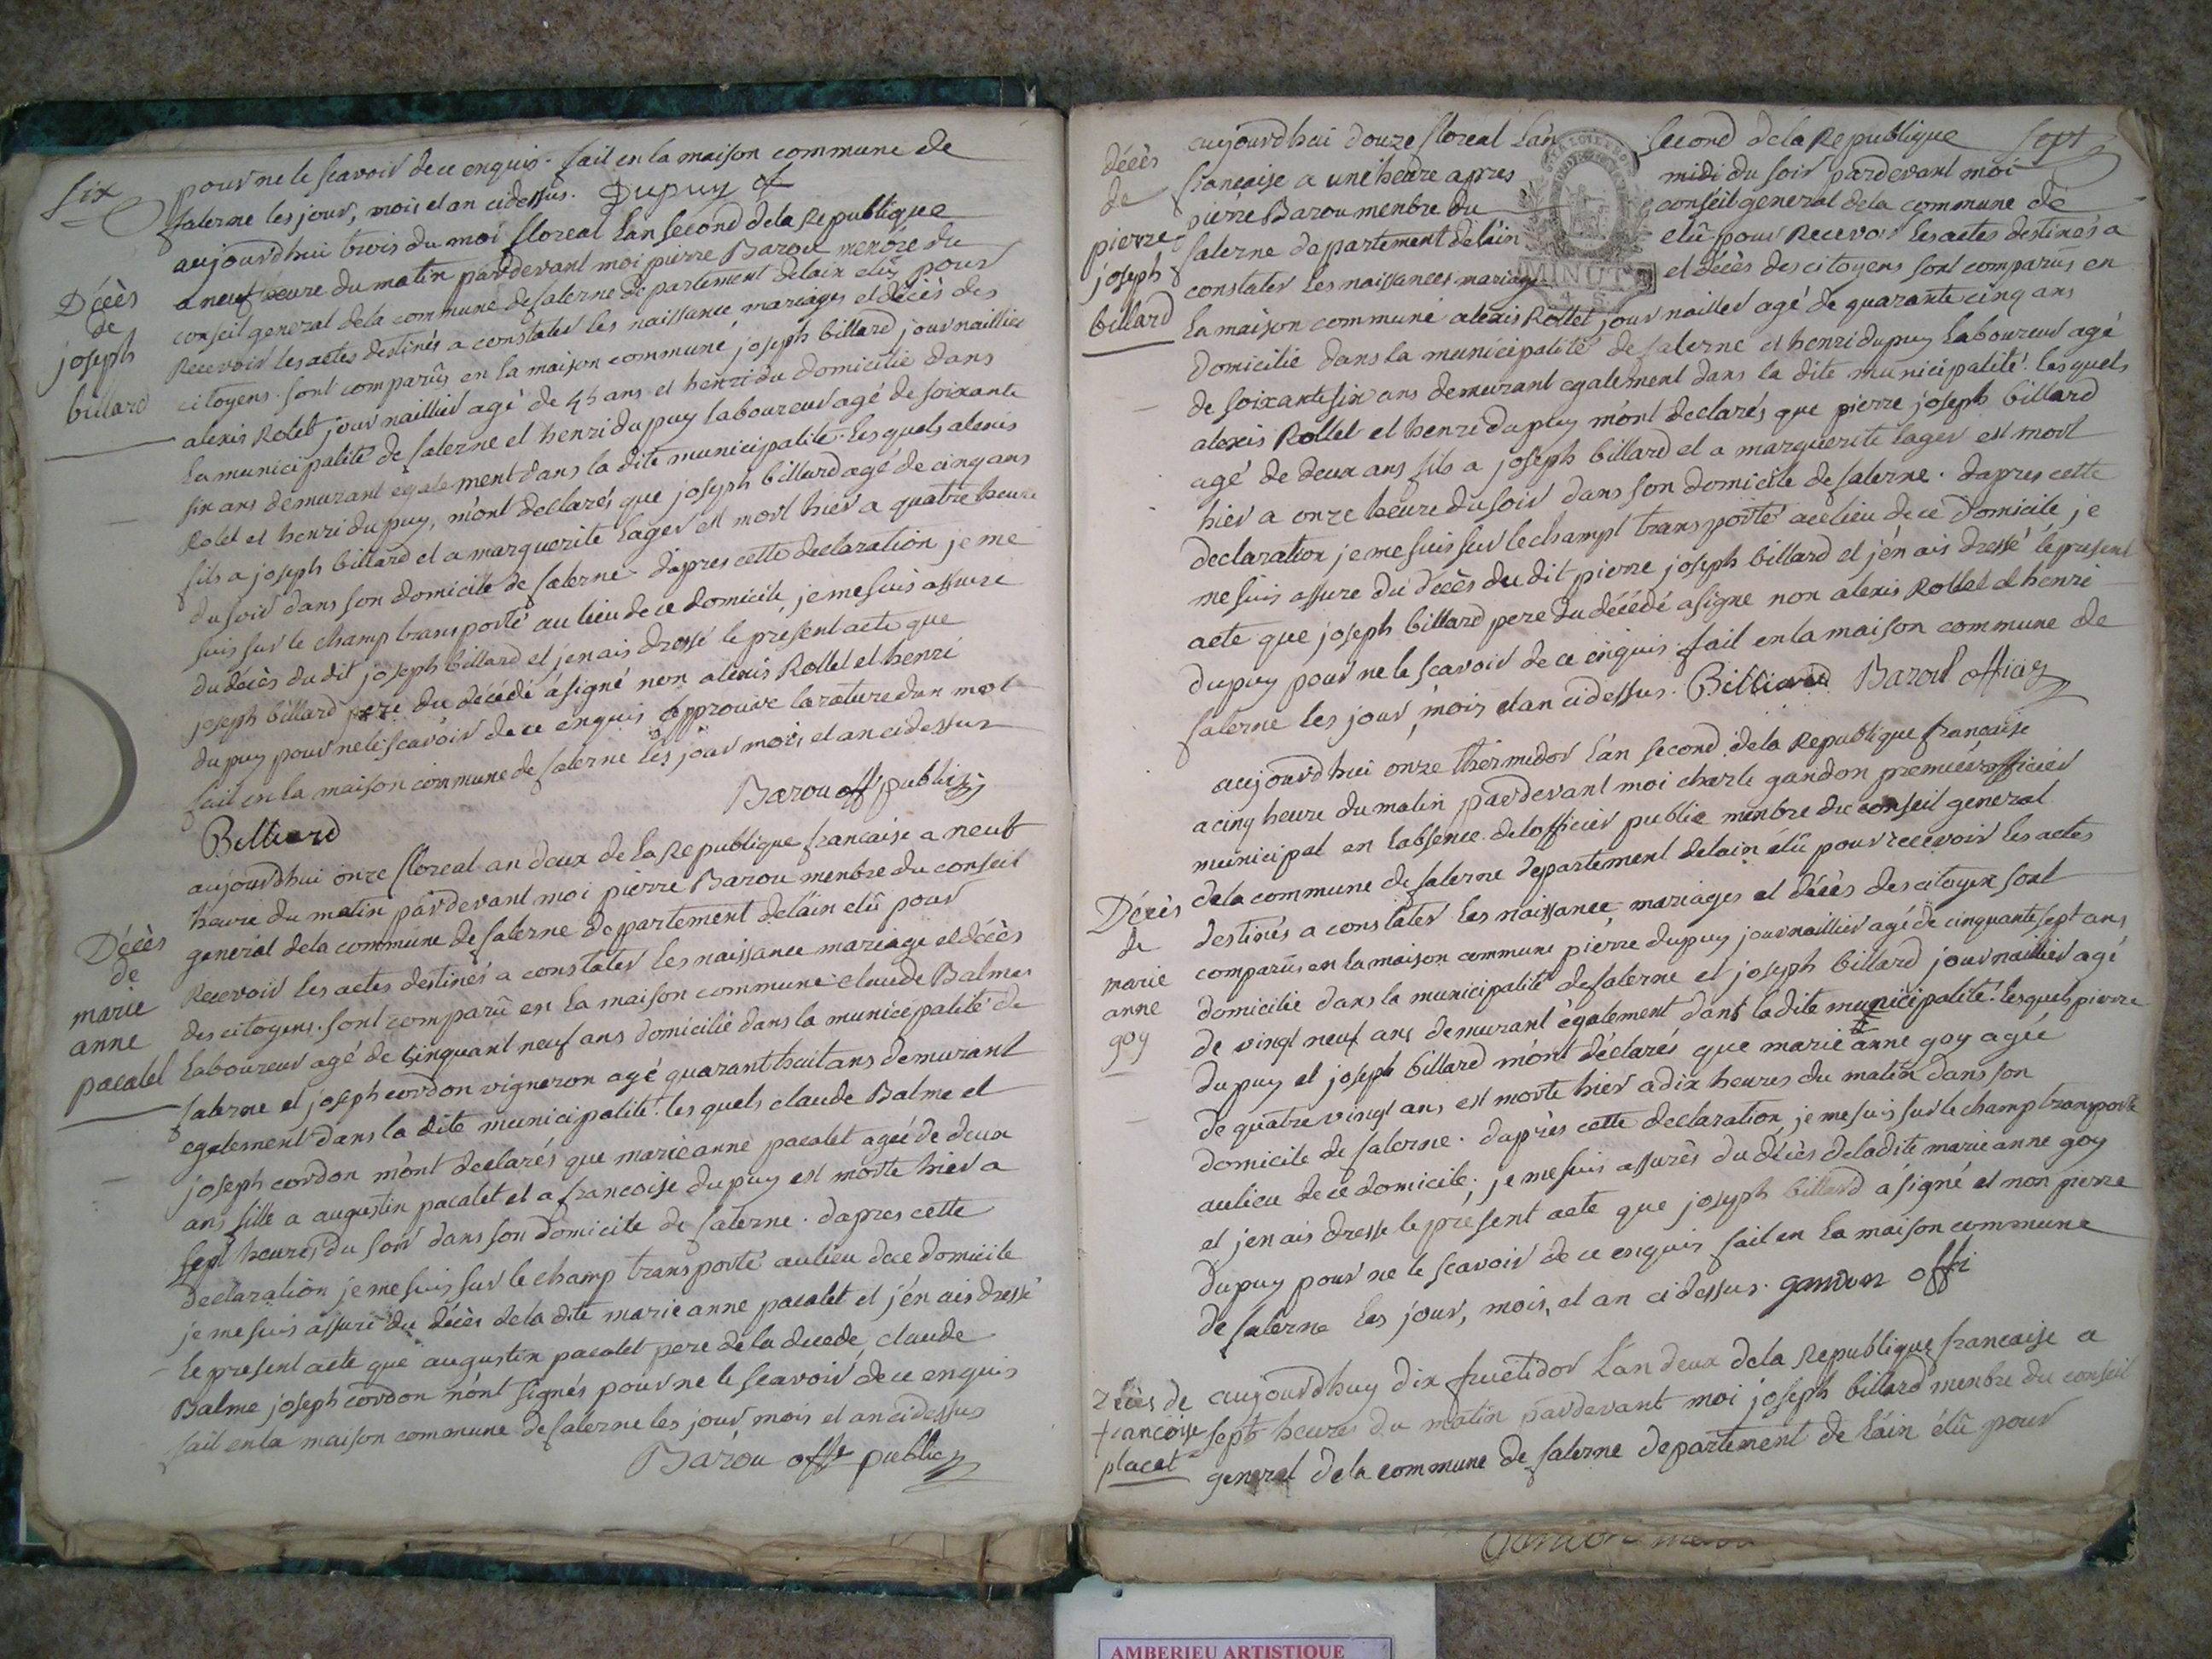 six
pour ne le scavoir de ce enquis. fait en la maison commune de
salerne les jour, mois et an cidessus. Dupuy of
Décès
de
joseph
billard
aujourd'hui trois du moi floreal lan second dela Republique
a neuf heure du matin pardevant moi pierre Barou menbre du
conseil general dela commune de salerne departement delain elû pour
Recevoir les actes destinés a constater les naissance mariages et décès des
citoyens. sont comparûs en la maison commune joseph billard journaillier
alexis Rolet journaillier agé de 45 ans et henri du domicilié dans
la municipalité de salerne et henri dupuy laboureur agé de soixante
six ans demurant egalement dans la dite municipalité. lesquels alexis
Rolet et henri dupuy, m'ont declarés que joseph billard agé de cinq ans
fils a joseph billard et a marguerite lager est mort hier a quatre heure
du soir dans son domicile de salerne. d'apres cette declaration je me
suis sur le champ transporté au lieu de ce domicile, je me suis assure
du décès du dit joseph billard et jen ais dressé le present acte que
joseph billard pere du décédé a signé non alexis Rollet et henri
dupuy pour ne le scavoir de ce enquis approuve la rature dun mot
fait en la maison commune de salerne les jour mois et an cidessus
Barou off public
Billiard
Décès
de
marie
anne
pacalet
aujourdhui onze floreal an deux de la Republique francaise a neuf
heure du matin pardevant moi pierre Barou menbre du conseil
general dela commune de salerne departement delain elû pour
Recevoir les actes destinés a constater les naissance mariage et décès
des citoyens. sont comparû en la maison commune claude Balmes
laboureur agé de cinquant neuf ans domicilié dans la municipalité de
salerne et joseph cordon vigneron agé quarant huit ans demurant
egalement dans la dite municipalité. les quels claude Balme et
joseph cordon m'ont declarés que marie anne pacalet ageé de deux
ans fille a augustin pacalet et a francoise dupuy est morte hier a
sept heures du soir dans son domicile de salerne. dapres cette
declaration je me suis sur le champ transporté au lieu de ce domicile
je me suis assuré du décès dela dite marie anne pacalet et j'en ais dressé
le present acte que augustin pacalet pere de la decede, claude
Balme joseph cordon n'ont signés pour ne le scavoir de ce enquis
fait en la maison commune de salerne les jour mois et an cidessus
Barou offr public
sept
décès
de
pierre
joseph
billard
aujourd'hui douze floreal lan second dela Republique
francaise a une heure apres midi du soir pardevant moi
pierre Barou menbre du conseil general dela commune de
salerne departement delain elû pour Recevoir les actes destinés a
constater les naissances mariages et décès des citoyens sont comparûs en
MINUT
la maison commune alexis Rollet journaillier agé de quarante cinq ans
domicilié dans la municipalité de salerne et henri dupuy laboureur agé
de soixante six ans demeurant egalement dans la dite municipalité. les quels
alexis Rollet et henri dupuy m'ont declarés que pierre joseph billard
agé de deux ans fils a joseph billard et a marguerite lager est mort
hier a onze heure du soir dans son domicile de salerne. dapres cette
declaration je me suis sur le champt transporté au lieu de ce domicile je
me suis assure du décès du dit pierre joseph billard et j'en ais dressé le present
acte que joseph billard pere du décédé a signe non alexis Rollet et henri
dupuy pour ne le scavoir de ce enquis. fait en la maison commune de
salerne les jour, mois et an cidessus. Billiard Barou officier
Décès
de
marie
anne
goy
aujourdhui onze thermidor l'an second dela Republique francaise
a cinq heure du matin pardevant moi charle gandon premier officier
municipal en labsence delofficier public menbre du conseil general
dela commune de salerne departement delain élû pour recevoir les actes
destinés a constater les naissance, mariages et décès des citoyen sont
comparûs en la maison commune pierre dupuy journaillier agé de cinquante sept ans
domicilié dans la municipalité de salerne et joseph billard journaillier agé
de vingt neuf ans demurant également dans la dite municipalité. lesquels pierre
dupuy et joseph billard m'ont déclarés que marie anne goy ageé
de quatre vingt ans est morte hier a dix heures du matin dans son
domicile de salerne. d'après cette declaration je me suis sur le champ transporté
au lieu de ce domicile; je me suis assurés du décès dela dite marie anne goy
et jen ais dresse le présent acte que joseph billard a signé et non pierre
dupuy pour ne le scavoir de ce enquis fait en la maison commune
de salerne les jour, mois, et an ci dessus. gandon offi
décès de
francoise
placat
aujourdhuy dix fructidor l'an deux dela Republique francaise a
sept heures du matin pardevant moi joseph billard menbre du conseil
general dela commune de salerne departement de l'ain élû pour
AMBERIEU ARTISTIQUE